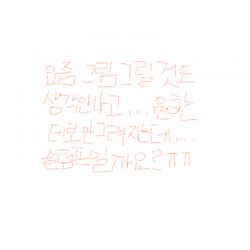 요즘 그림그릴것도
생각안나고... 원하는
데로안그려지는데....
슬럼프일까요?ㅠㅠ